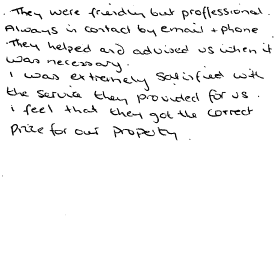 . They were friendly but proffessional.
Always in contact by email + phone
They helped and advised us when it
was necessary.
I was extremely satisfied with
the service they provided for us.
i feel that they got the correct
price for our property.